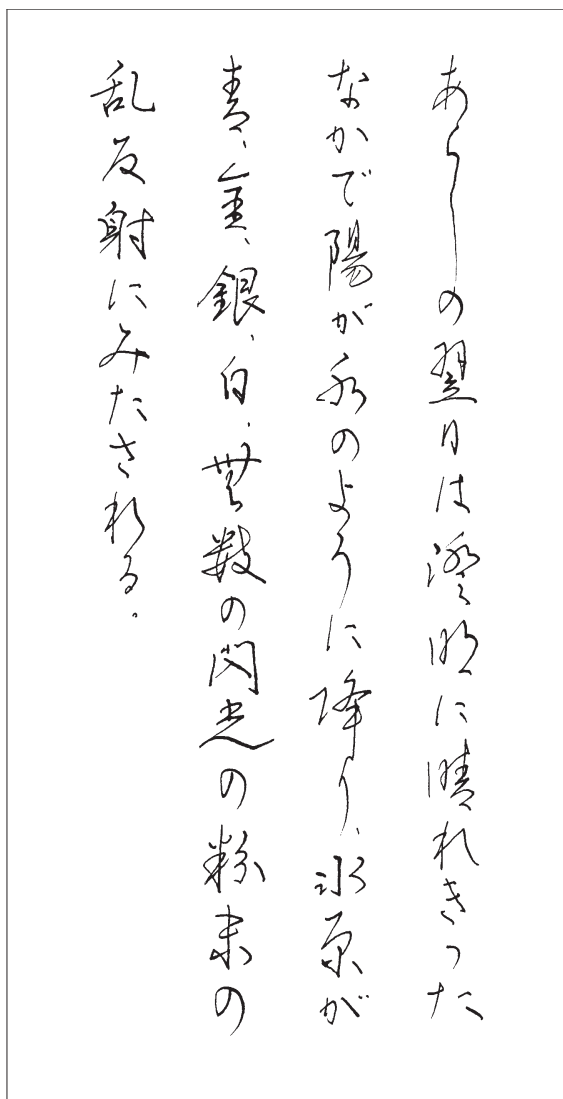 あらしの翌日は澄明に晴れきった
なかで陽が水のように降り、氷原が
青、金、銀、白、無数の閃光の粉末の
乱反射にみたされる。